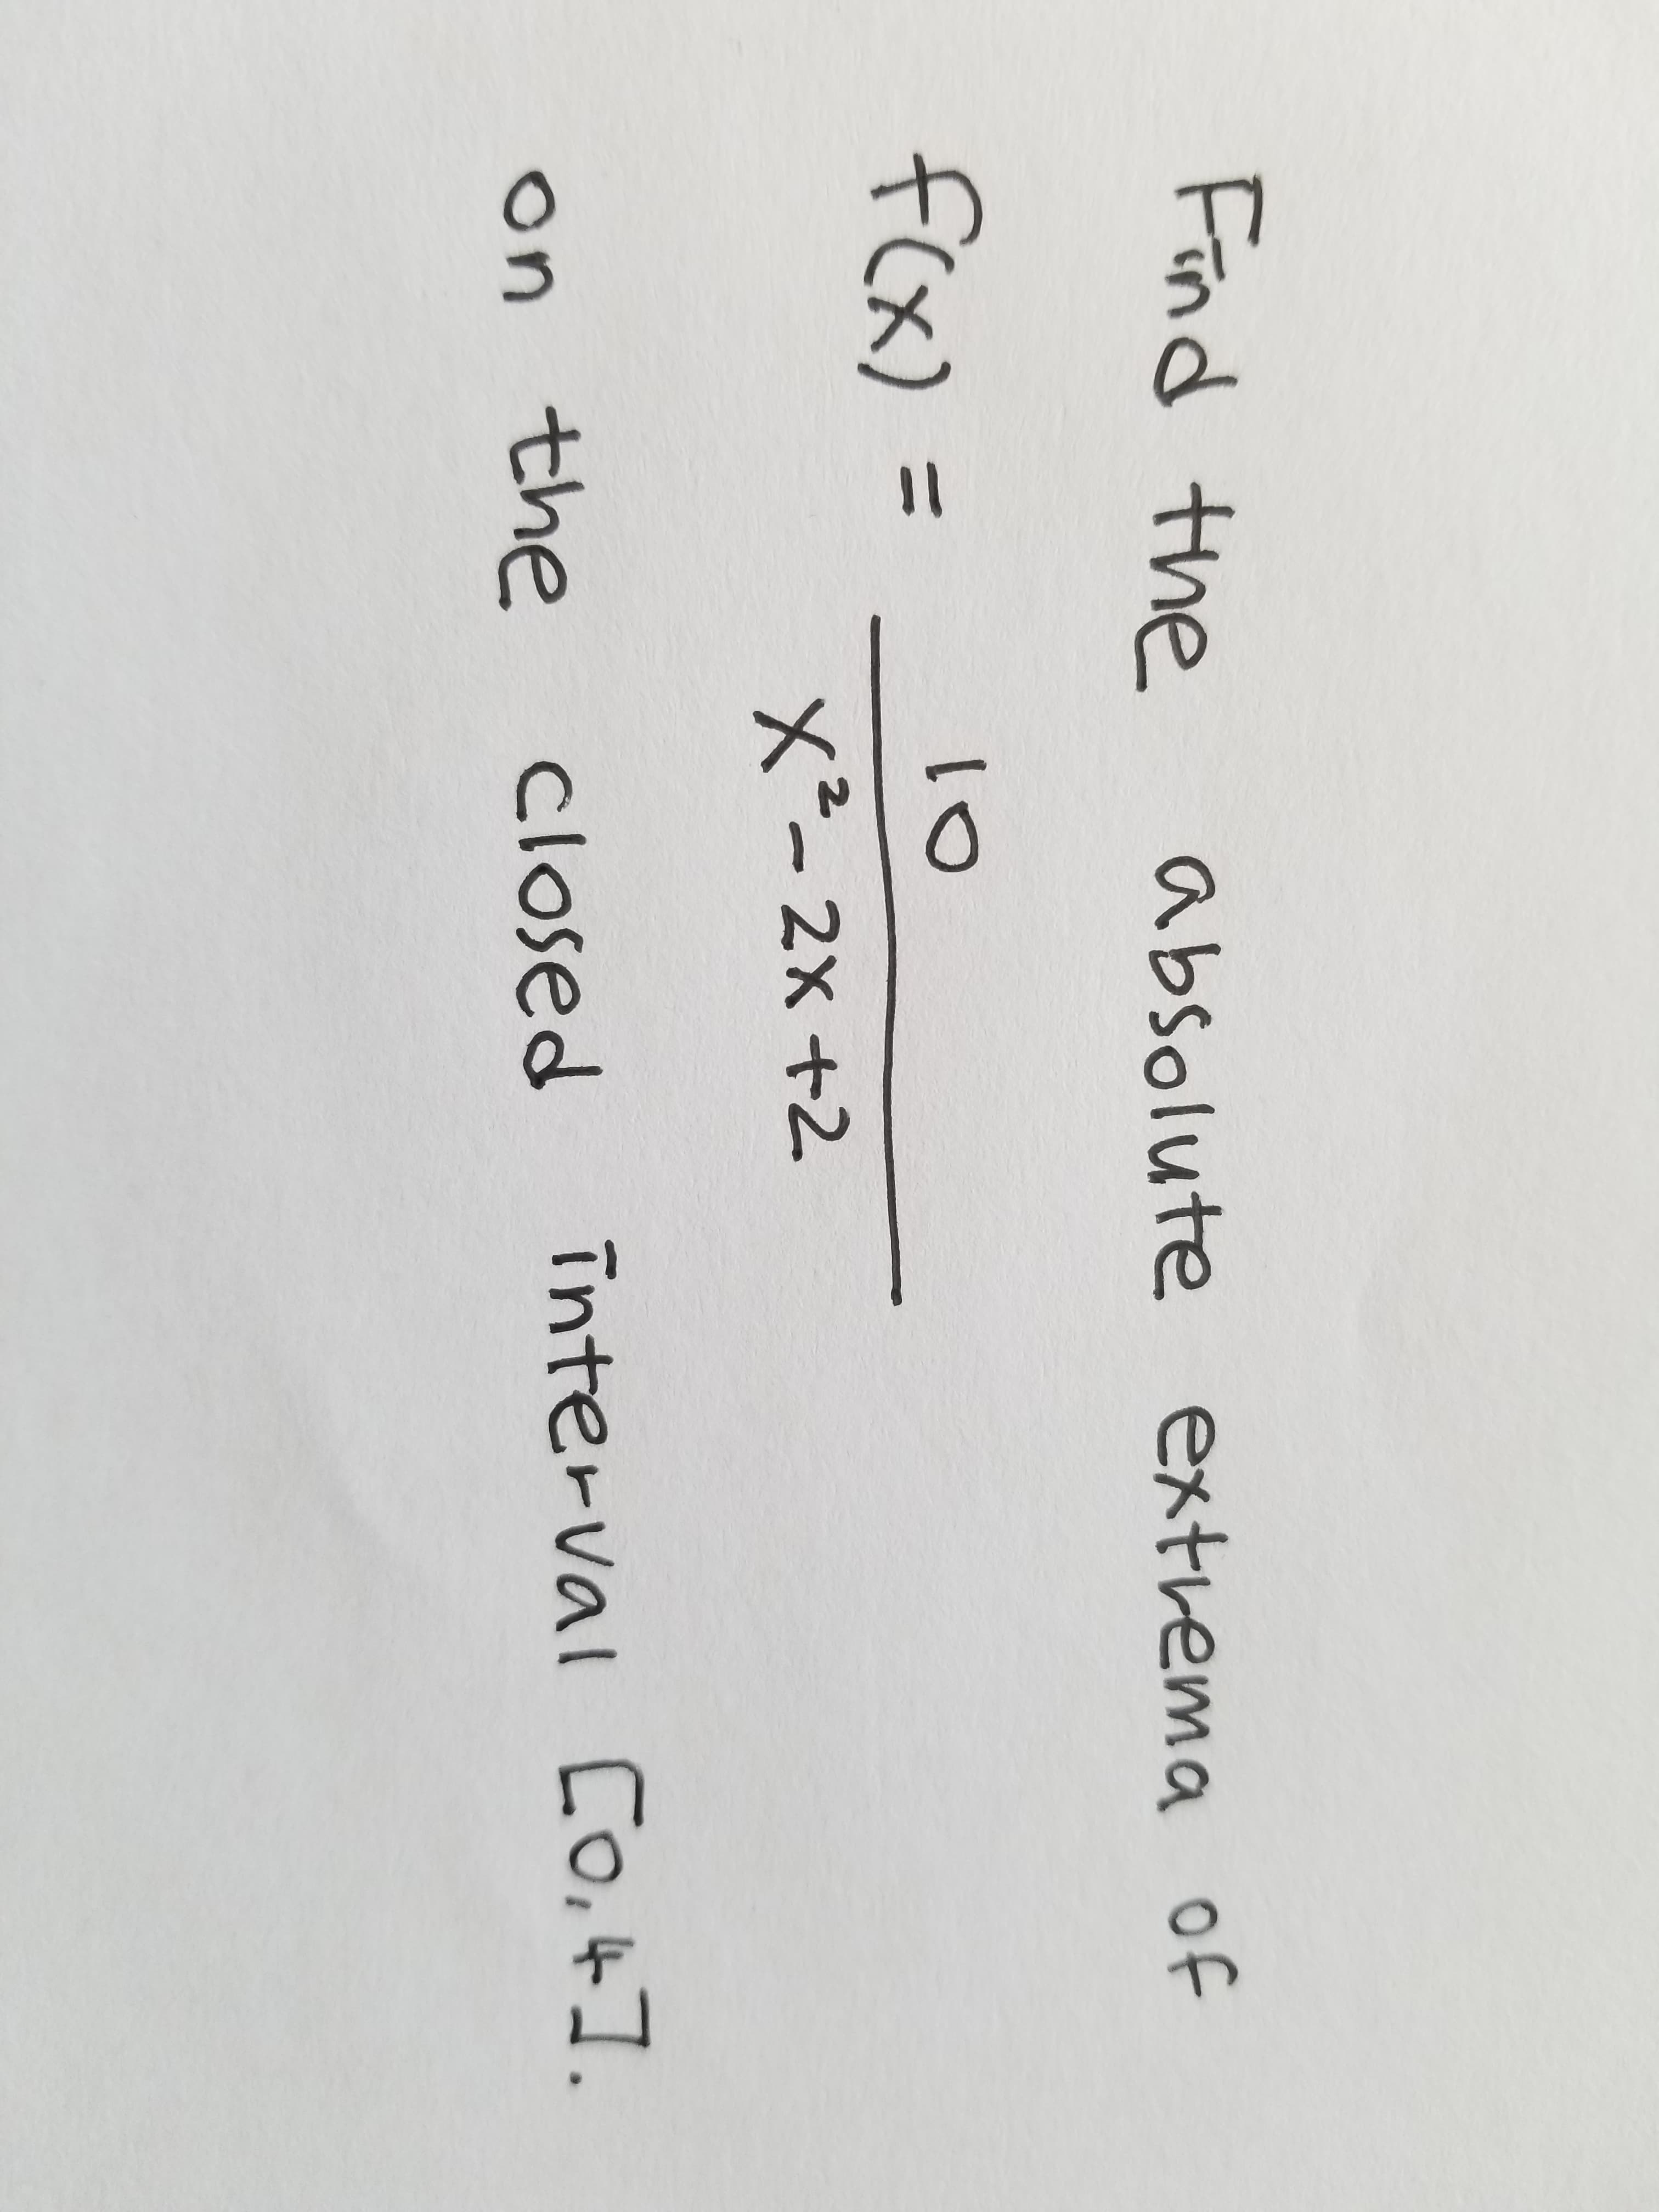 Find the absolute extrema of
f(x) = 10
x² - 2x + 2
on the closed interval [0,4].